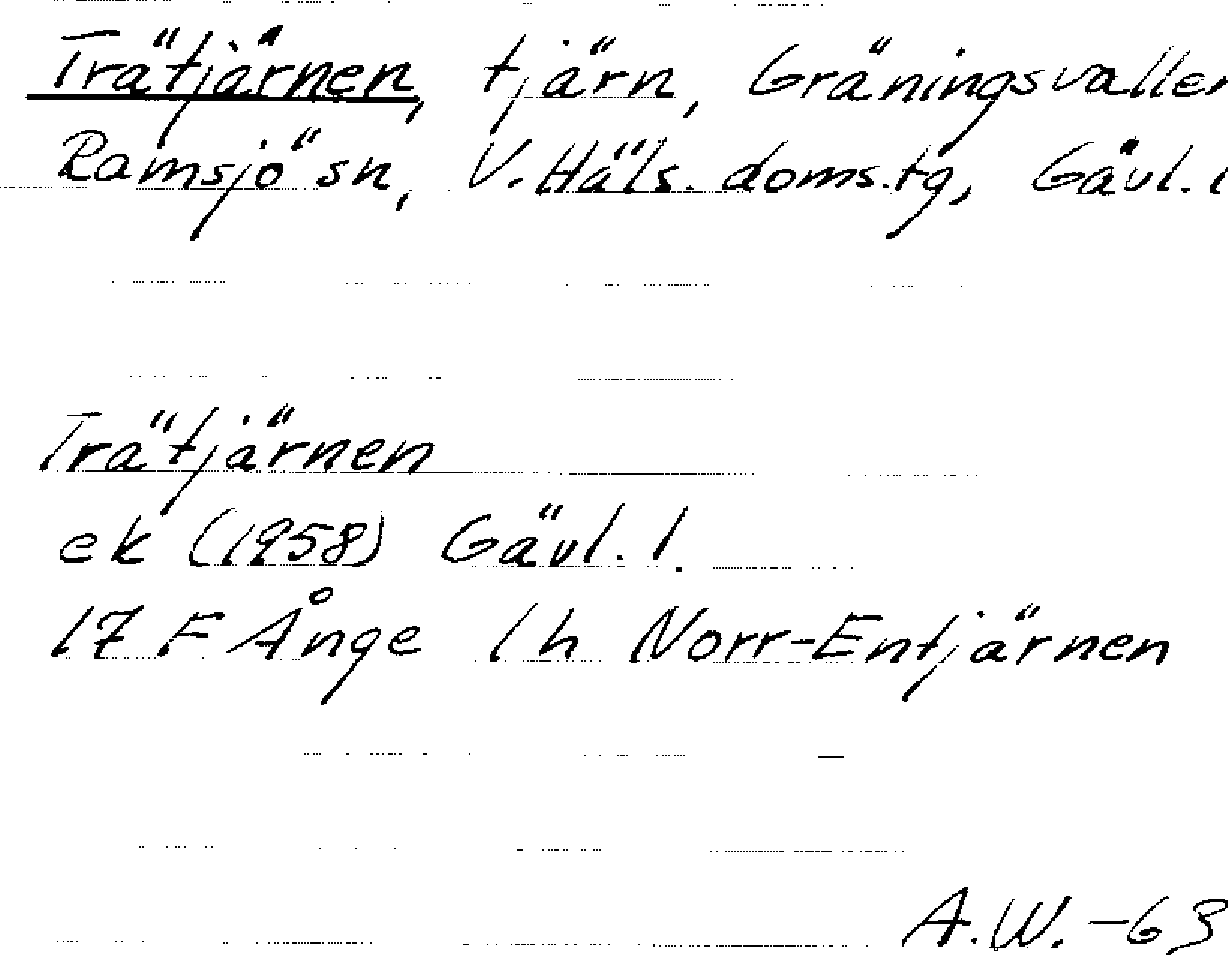 Trätjärnen, tjärn, Gräningsvallen
Ramsjö sn, V. Häls. doms.tg, Gävl. l
Trätjärnen
ek (1958) Gävl. l.
17 F Ånge 1h Norr-Entjärnen
A.W. -63